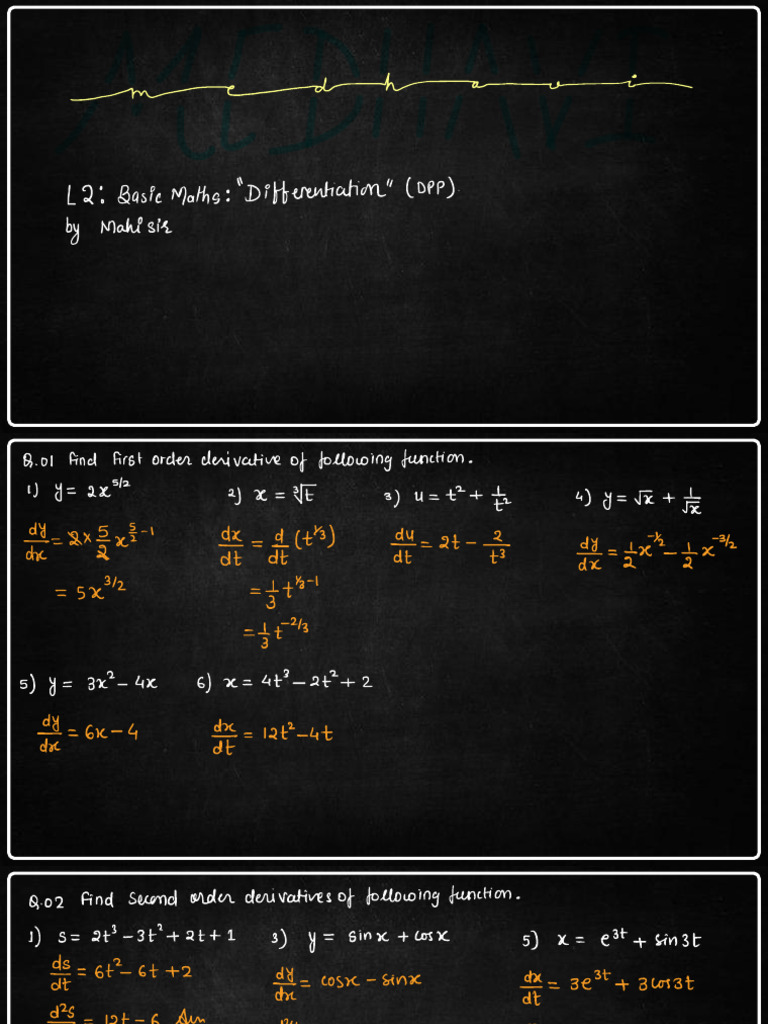 MEDHAVI
m e d h a v i
L2: Basic Maths: "Differentiation" (DPP)
by Mahi sir
Q.01 Find first order derivative of following function.
1) y = 2x^{5/2}
dy/dx = 2 × 5/2 x^{5/2 - 1}
= 5x^{3/2}
2) x = ∛t
dx/dt = d/dt (t^{1/3})
= 1/3 t^{1/3 - 1}
= 1/3 t^{-2/3}
3) u = t² + 1/t²
du/dt = 2t - 2/t³
4) y = √x + 1/√x
dy/dx = 1/2 x^{-1/2} - 1/2 x^{-3/2}
5) y = 3x² - 4x
dy/dx = 6x - 4
6) x = 4t³ - 2t² + 2
dx/dt = 12t² - 4t
Q.02 Find Second order derivatives of following function.
1) s = 2t³ - 3t² + 2t + 1
ds/dt = 6t² - 6t + 2
d²s = 12t - 6 Ans
3) y = sinx + cosx
dy/dx = cosx - sinx
5) x = e^{3t} + sin3t
dx/dt = 3e^{3t} + 3cos3t